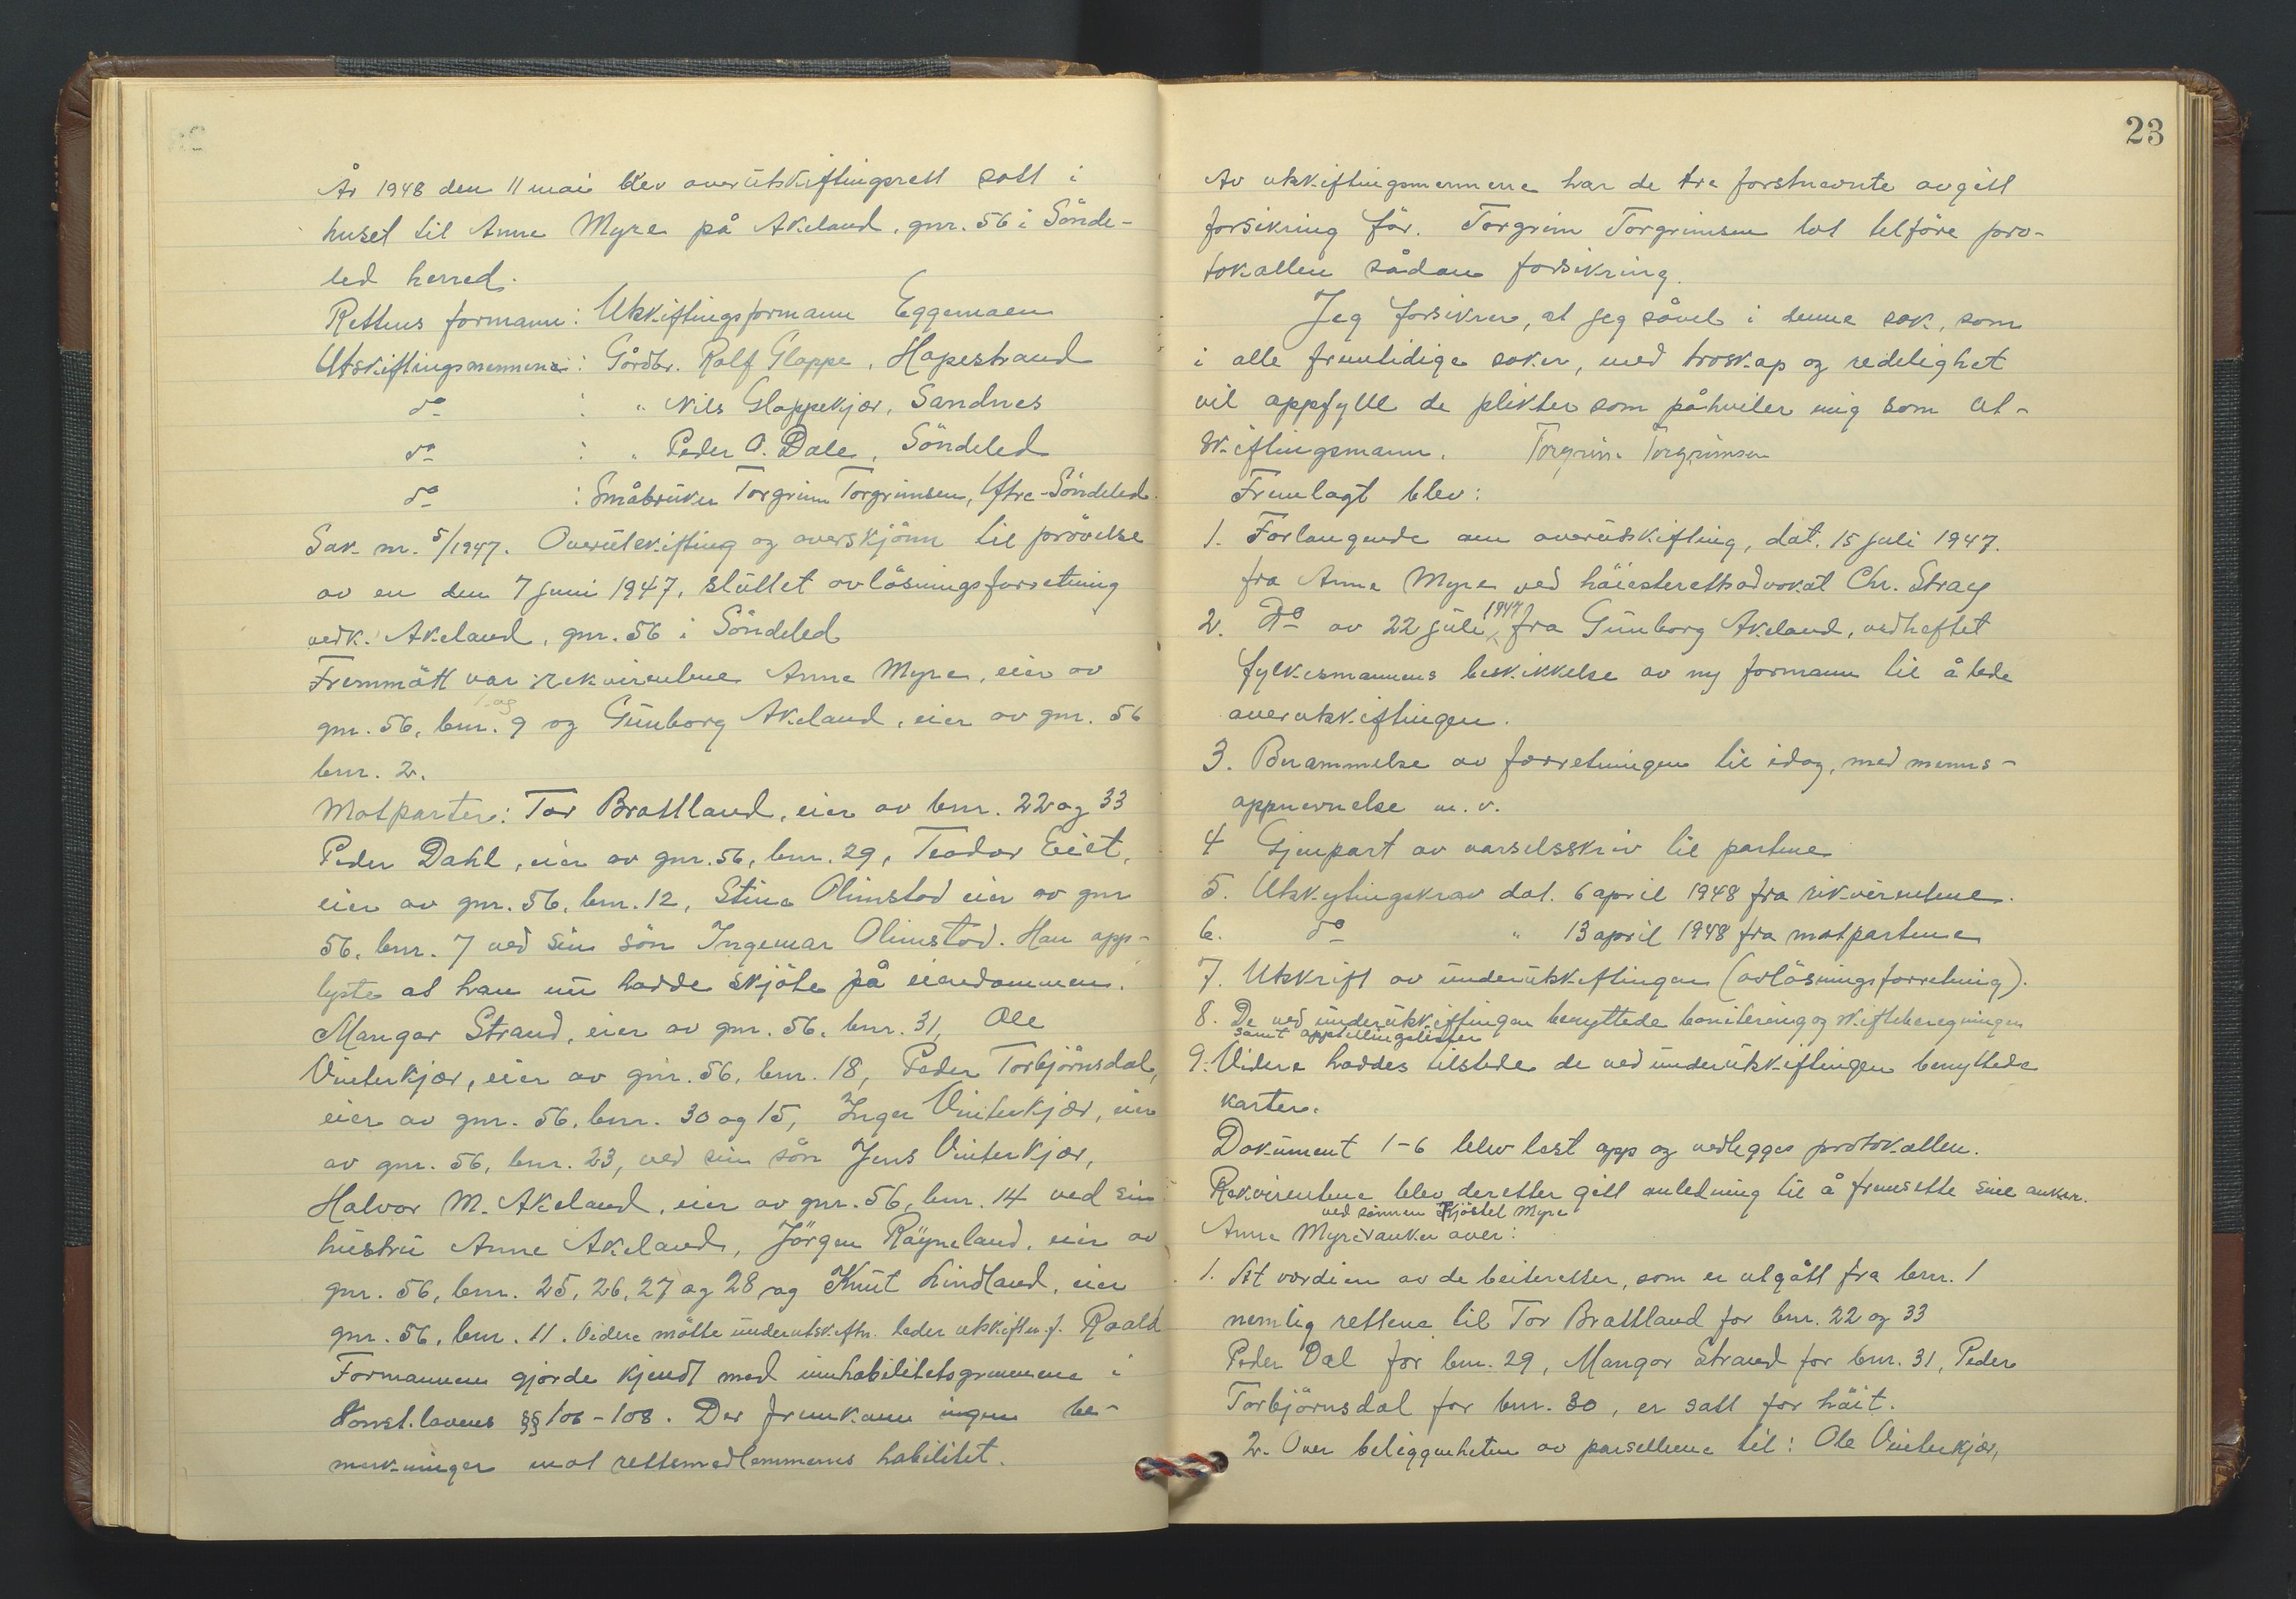 År 1948 den 11 mai blev overutskiftingsrett satt i
huset til Anne Myre på Akeland, gnr. 56 i Sönde-
led herred.
Rettens formann: Utskiftingsformann Eggemoen
Utskiftingsmennene: Gårdbr. Rolf Gloppe, Hopestrand
do : " Nils Gloppekjær, Sandnes
do : " Peder O. Dale, Söndeled
do : Småbruker Torgrim Torgrimsen, Ytre-Söndeled.
Sak nr. 5/1947. Overutskifting og overskjönn til prövelse
av en den 7 juni 1947, sluttet avlösningsforretning
vedk. Akeland, gnr. 56 i Söndeled
Fremmött var: rekvirentene Anne Myre, eier av
1 og
gnr. 56, bnr. 9 og Gunborg Akeland, eier av gnr. 56
bnr. 2.
Motparter: Tor Brattland, eier av bnr. 22 og 33
Peder Dahl, eier av gnr. 56, bnr. 29, Teodor Eiet,
eier av gnr. 56, bnr. 12, Stina Olimstad eier av gnr
56, bnr. 7 ved sin sön Ingemar Olimstad. Han opp-
lyste at han nu hadde skjöte på eiendommen.
Mangor Strand, eier av gnr. 56, bnr. 31, Ole
Vinterkjær, eier av gnr. 56, bnr. 18, Peder Torbjörnsdal,
eier av gnr. 56, bnr. 30 og 15, Inger Vinterkjær, eier
av gnr. 56, bnr. 23, ved sin sön Jens Vinterkjær,
Halvor M. Akeland, eier av gnr. 56, bnr. 14 ved sin
hustru Anne Akeland, Jörgen Röyneland, eier av
gnr. 56, bnr. 25, 26, 27 og 28 og Knut Lindland, eier
gnr. 56, bnr. 11. Videre mötte underutskiftn. leder utskiftn.f. Roald
Formannen gjorde kjendt med innhabilitetsgrunnene i
domst.lovens §§ 106-108. Der fremkom ingen be-
merkninger mot rettsmedlemmenes habilitet.
23
Av utskiftingsmennene har de tre forstnevnte avgitt
forsikring för. Torgrim Torgrimsen lot tilföre pro-
tokollen sådan forsikring.
Jeg forsikrer, at jeg såvel i denne sak, som
i alle fremtidige saker, med troskap og redelighet
vil oppfylle de plikter som påhviler mig som ut-
skiftingsmann. Torgrim Torgrimsen
Fremlagt blev:
1. Forlangende om overutskifting, dat. 15 juli 1947.
fra Anne Myre ved höiesterettsadvokat Chr. Stray
2. do av 22 juli 1947 fra Gunborg Akeland, vedheftet
fylkesmannens beskikkelse av ny formann til å lede
overutskiftingen.
3. Berammelse av forretningen til idag, med menns-
oppnevnelse m.v.
4 Gjenpart av varselsskriv til partene
5. Utskytingskrav dat. 6 april 1948 fra rekvirentene.
6. do " 13 april 1948 fra motpartene
7. Utskrift av underutskiftingen (avlösningsforretning).
8. De ved underutskiftingen benyttede bonitering og skifteberegningen
samt oppstillingslister
9. Videre haddes tilstede de ved underutskiftingen benyttede
karter.
Dokument 1-6 blev lest opp og vedlegges protokollen.
Rekvirentene blev deretter gitt anledning til å fremsette sine anker.
ved sönnen Kjöstel Myre
Anne Myre anker over:
1. At verdien av de beiteretter, som er utgått fra bnr. 1
nemlig rettene til Tor Brattland for bnr. 22 og 33
Peder Dal for bnr. 29, Mangor Strand for bnr. 31, Peder
Torbjörnsdal for bnr. 30, er satt for höit.
2. Over beliggenheten av parsellene til: Ole Vinterkjær,